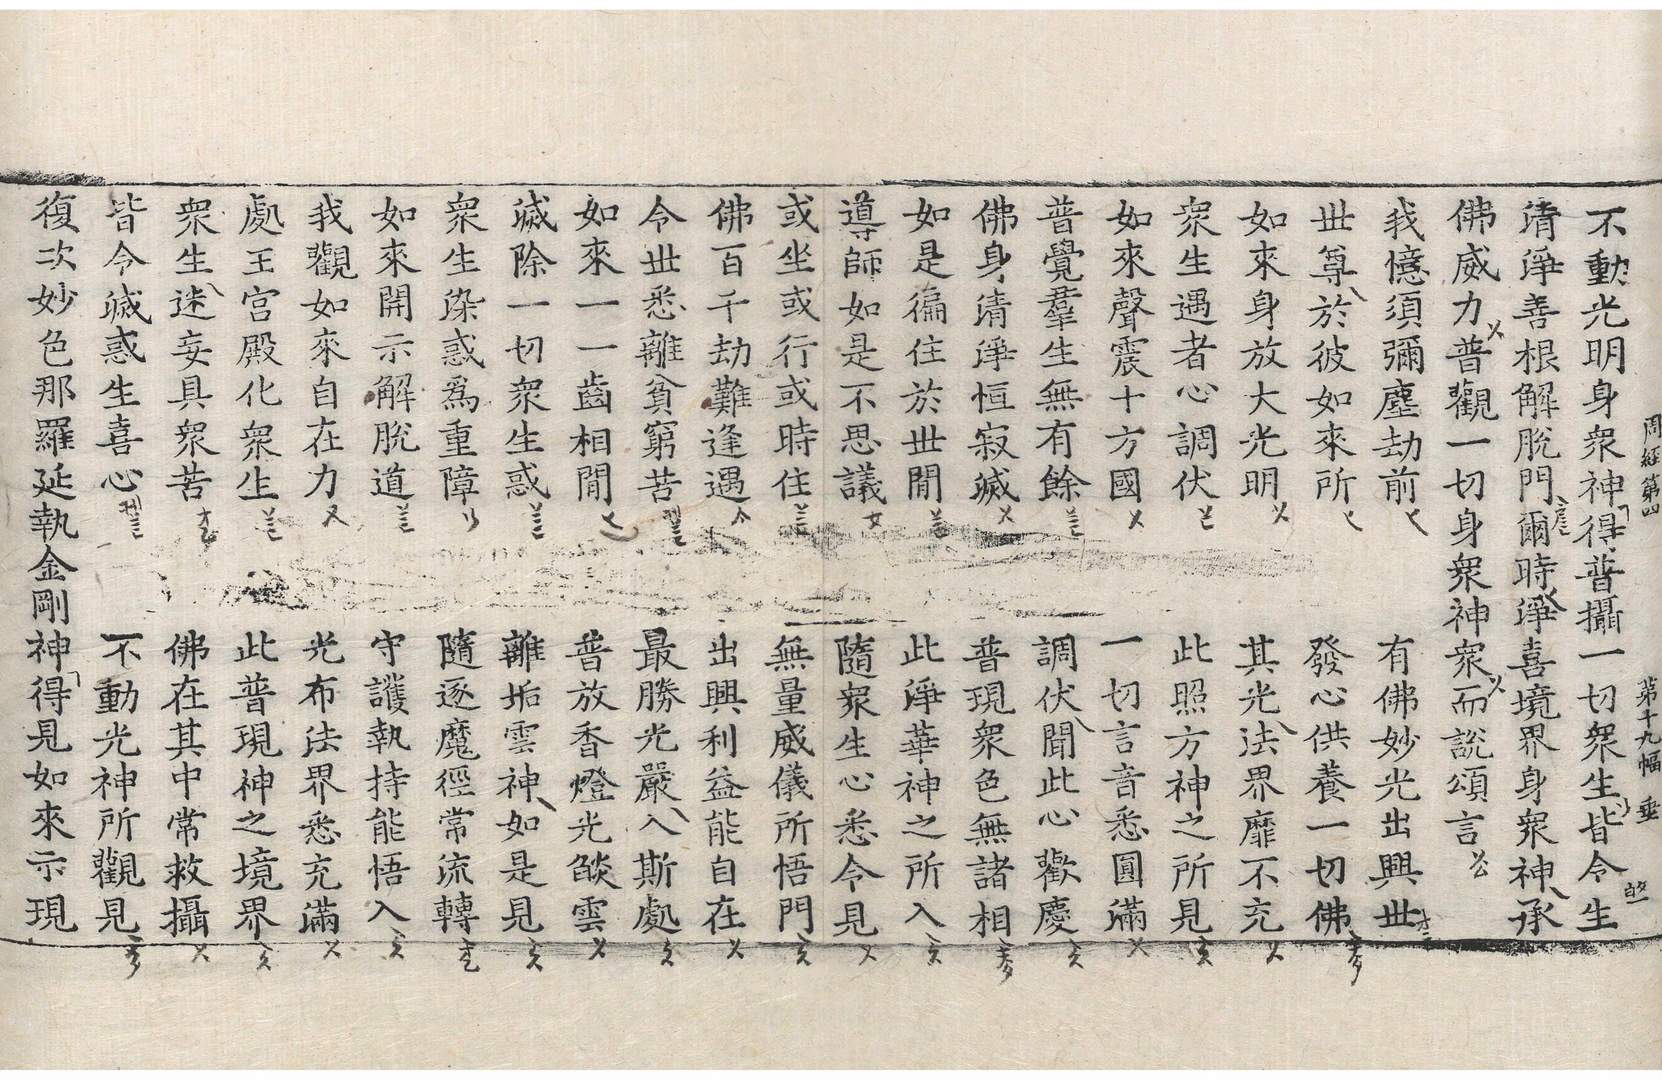 周經第四 第十九幅 垂
不動光明身衆神得普攝一切衆生皆令生
清淨善根解脫門爾時淨喜境界身衆神承
佛威力普觀一切身衆神衆而說頌言
我憶須彌塵劫前 有佛妙光出興世
世尊於彼如來所 發心供養一切佛
如來身放大光明 其光法界靡不充
衆生遇者心調伏 此照方神之所見
如來聲震十方國 一切言音悉圓滿
普覺羣生無有餘 調伏聞此心歡慶
佛身清淨恒寂滅 普現衆色無諸相
如是徧住於世閒 此淨華神之所入
導師如是不思議 隨衆生心悉令見
或坐或行或時住 無量威儀所悟門
佛百千劫難逢遇 出興利益能自在
令世悉離貧窮苦 最勝光嚴入斯處
如來一一齒相閒 普放香燈光焰雲
滅除一切衆生惑 離垢雲神如是見
衆生染惑爲重障 隨逐魔徑常流轉
如來開示解脫道 守護執持能悟入
我觀如來自在力 光布法界悉充滿
處王宮殿化衆生 此普現神之境界
衆生迷妄具衆苦 佛在其中常救攝
皆令滅惑生喜心 不動光神所觀見
復次妙色那羅延執金剛神得見如來示現